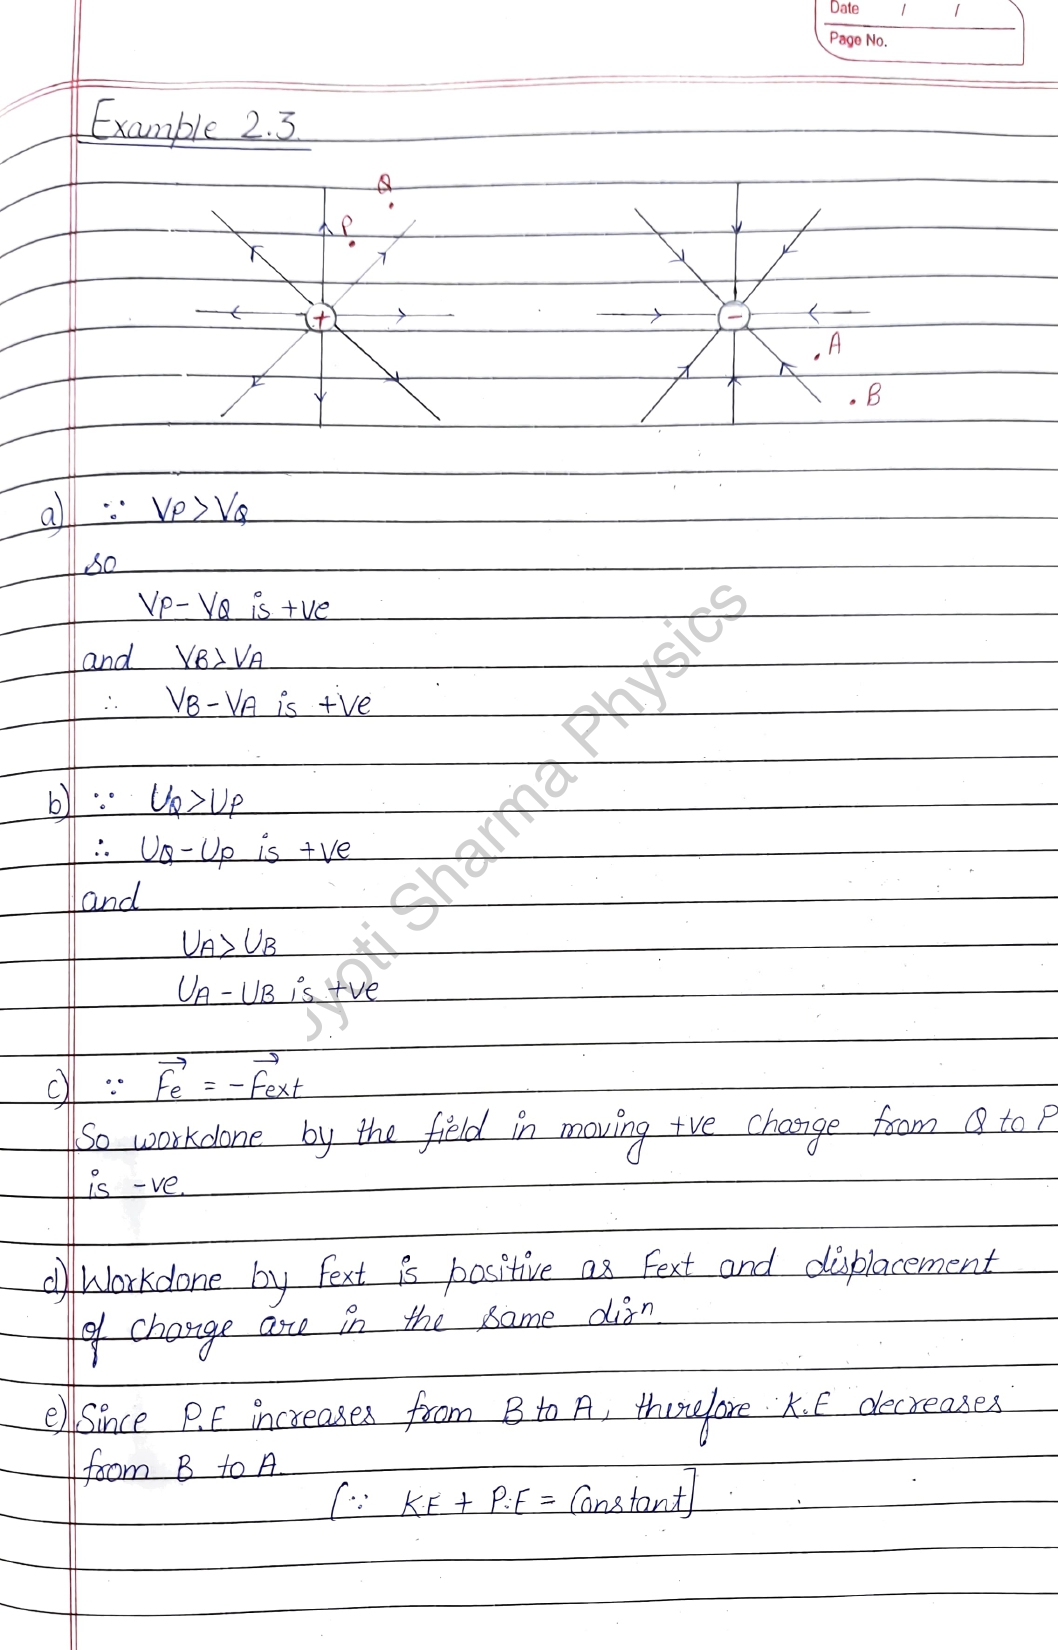 Date / /
Page No.
Example 2.3
Q
P
+
−
A
B
a) ∵ VP > VQ
so
VP − VQ is +ve
and VB > VA
∴ VB − VA is +ve
b) ∵ UQ > UP
∴ UQ − UP is +ve
and
UA > UB
UA − UB is +ve
c) ∵ Fe = −Fext
So workdone by the field in moving +ve charge from Q to P
is −ve.
d) Workdone by Fext is positive as Fext and displacement
of charge are in the same dirn.
e) Since P.E increases from B to A, therefore K.E decreases
from B to A.
[∵ K.E + P.E = Constant]
Jyoti Sharma Physics